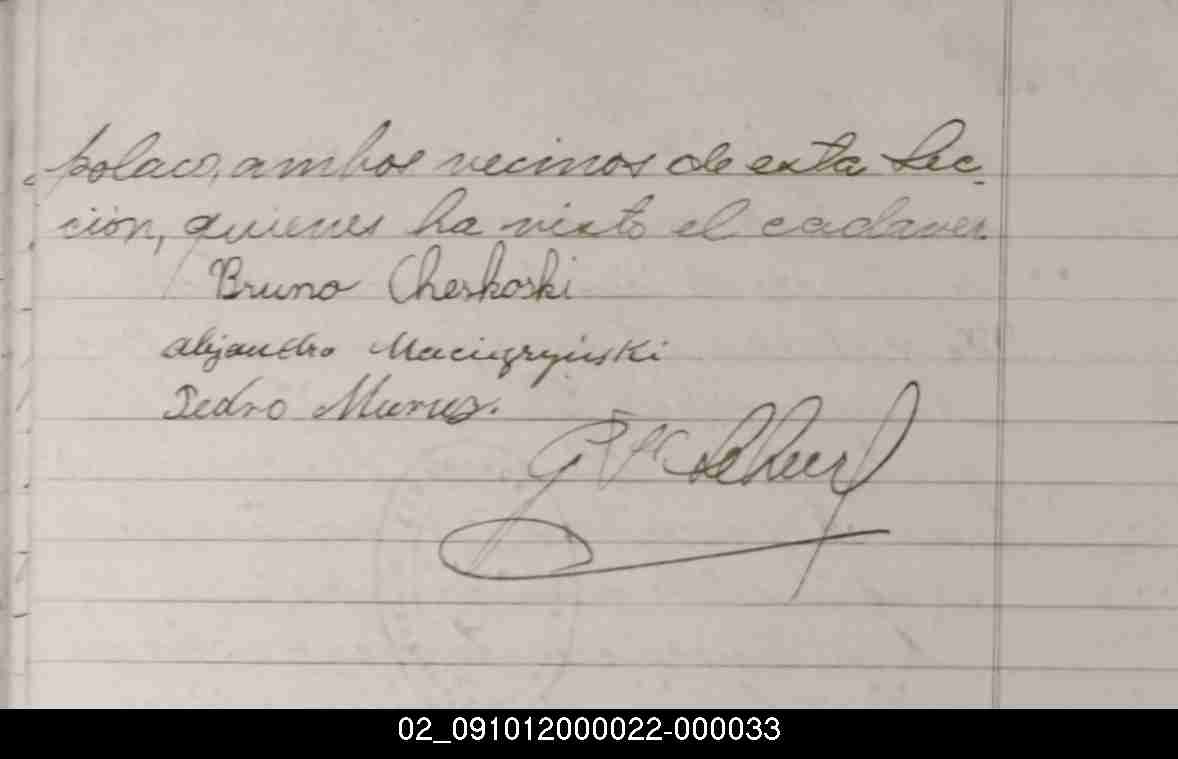 polaco, ambos vecinos de esta Sec-
ción, quienes ha visto el cadaver.
Bruno Cherkoski
alejandro
Pedro
02_091012000022-000033